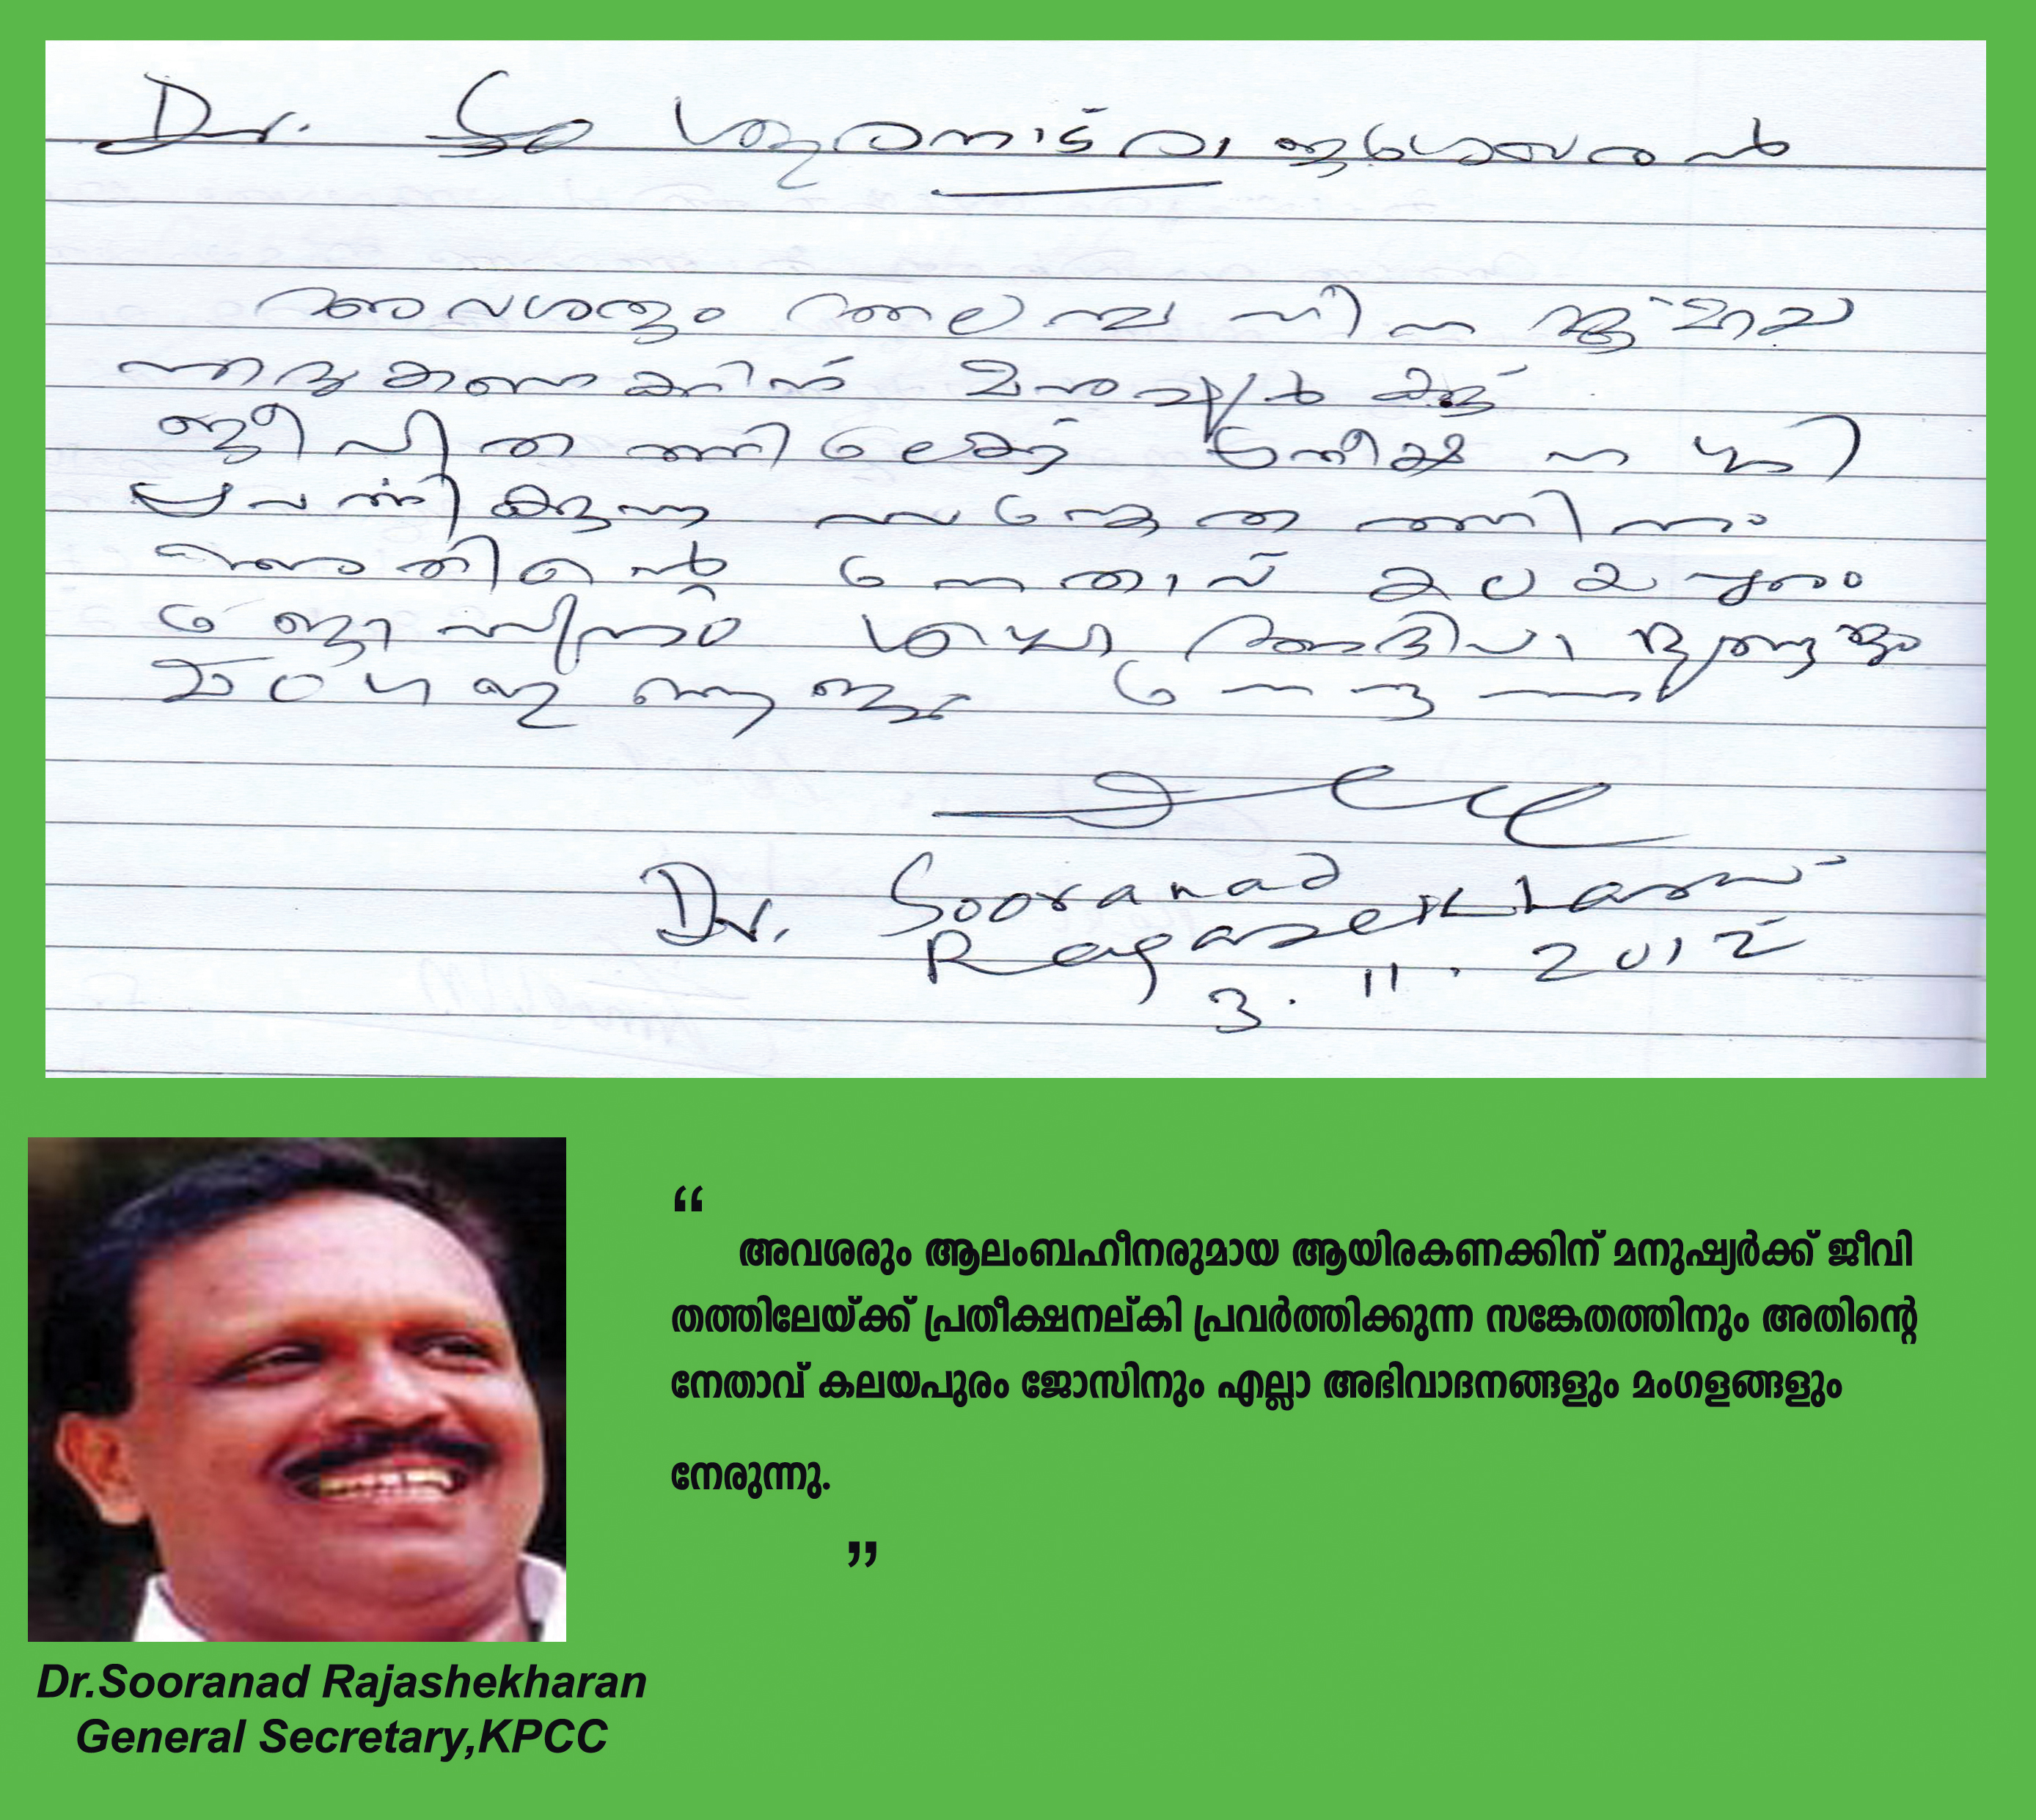 Dr. ശൂരനാട് രാജശേഖരൻ
അവശരും ആലംബഹീനരുമായ
ആയിരകണക്കിന് മനുഷ്യർക്ക്
ജീവിതത്തിലേക്ക് പ്രതീക്ഷ നല്കി
പ്രവർത്തിക്കുന്ന സങ്കേതത്തിനും
അതിന്റെ നേതാവ് കലയപുരം
ജോസിനും എല്ലാ അഭിവാദനങ്ങളും
മംഗളങ്ങളും നേരുന്നു
Dr. Sooranad
Rajasekharan
3.11.2012
“
അവശരും ആലംബഹീനരുമായ ആയിരകണക്കിന് മനുഷ്യർക്ക് ജീവി
തത്തിലേയ്ക്ക് പ്രതീക്ഷനല്കി പ്രവർത്തിക്കുന്ന സങ്കേതത്തിനും അതിന്റെ
നേതാവ് കലയപുരം ജോസിനും എല്ലാ അഭിവാദനങ്ങളും മംഗളങ്ങളും
നേരുന്നു.
”
Dr.Sooranad Rajashekharan
General Secretary,KPCC